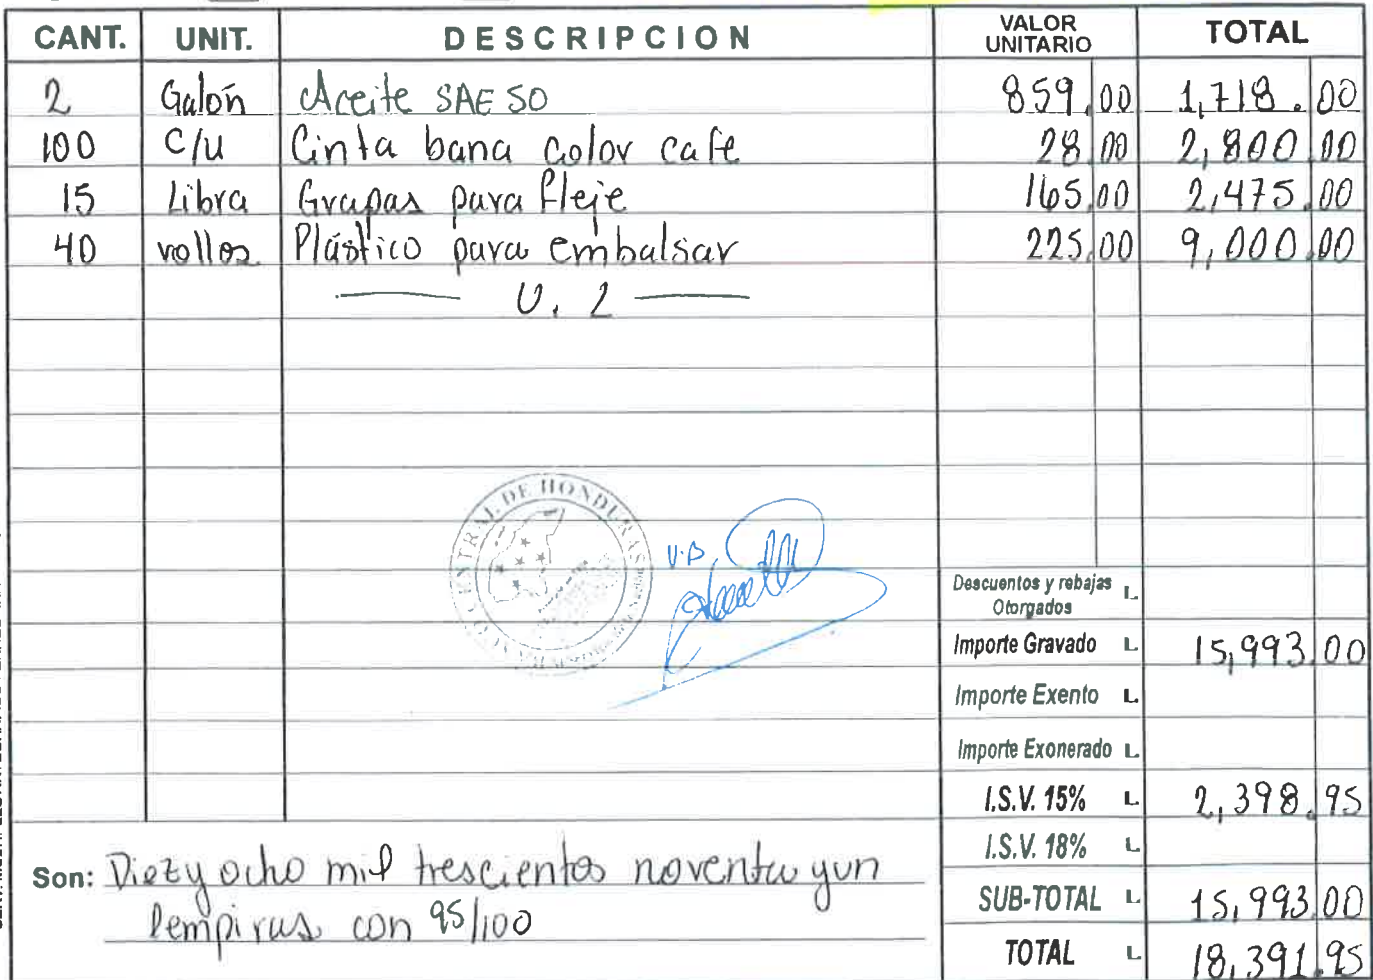 CANT. UNIT. DESCRIPCION VALOR UNITARIO TOTAL
2 Galón Aceite SAE 50 859.00 1,718.00
100 C/U Cinta bana color cafe 28.00 2,800.00
15 Libra Grapas para fleje 165.00 2,475.00
40 rollos Plástico para embalsar 225.00 9,000.00
U. L
CENTRAL DE HONDURAS
V.B.
Descuentos y rebajas Otorgados L.
Importe Gravado L 15,993.00
Importe Exento L.
Importe Exonerado L.
I.S.V. 15% L. 2,398.95
I.S.V. 18% L
SUB-TOTAL L 15,993.00
TOTAL L 18,391.95
Son: Diez y ocho mil trescientos noventa y un
lempiras con 95/100